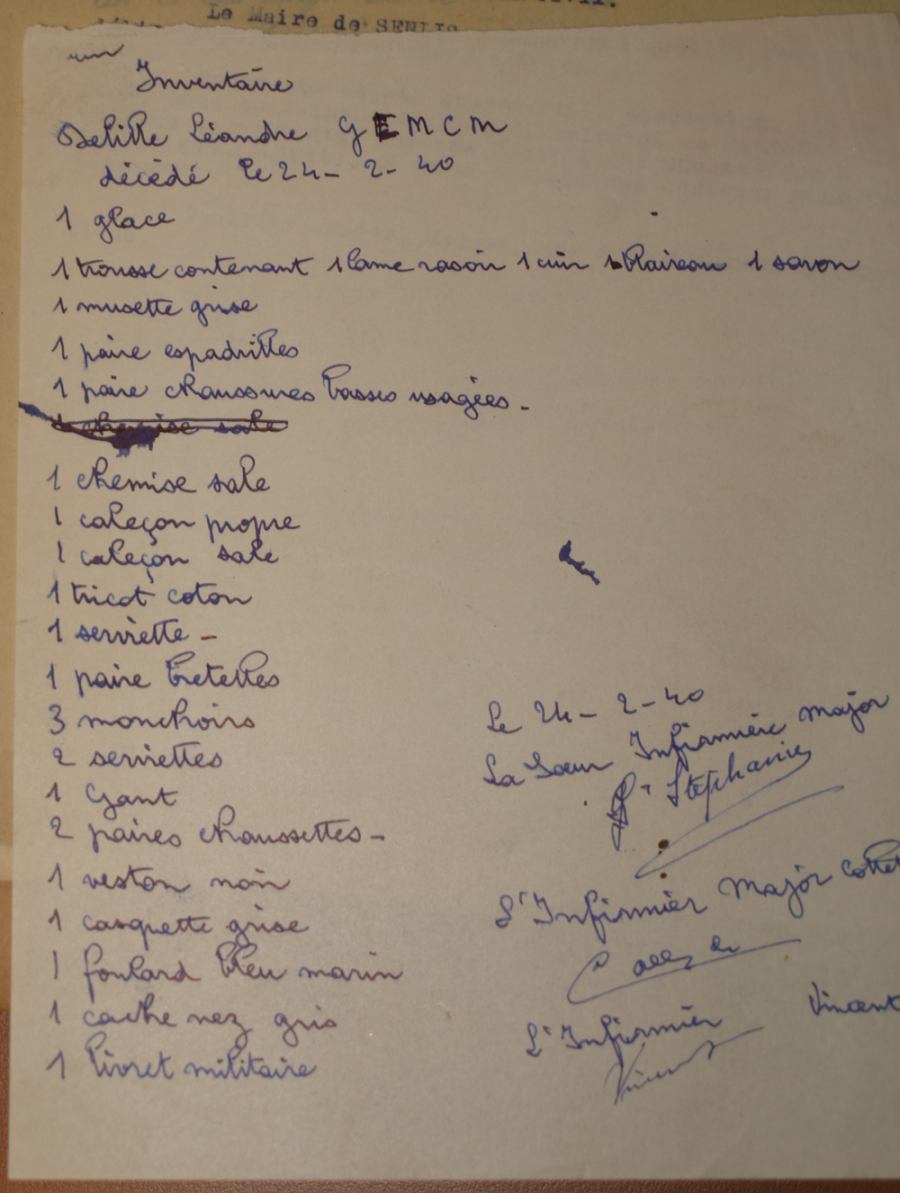 Le Maire de SENLIS
Inventaire
Delille Léandre GEMCM
décédé le 24-2-40
1 glace
1 trousse contenant 1 lame rasoir 1 cuir 1 blaireau 1 savon
1 musette grise
1 paire espadrilles
1 paire chaussures basses usagées.
1 chemise sale
1 chemise sale
1 caleçon propre
1 caleçon sale
1 tricot coton
1 serviette -
1 paire bretelles
3 mouchoirs
2 serviettes
1 Gant
2 paires chaussettes -
1 veston noir
1 casquette grise
1 foulard bleu marin
1 cache nez gris
1 livret militaire
Le 24-2-40
La Soeur Infirmière major
Sr Stéphanie
L'Infirmier Major
L'Infirmier Vincent
Vincent